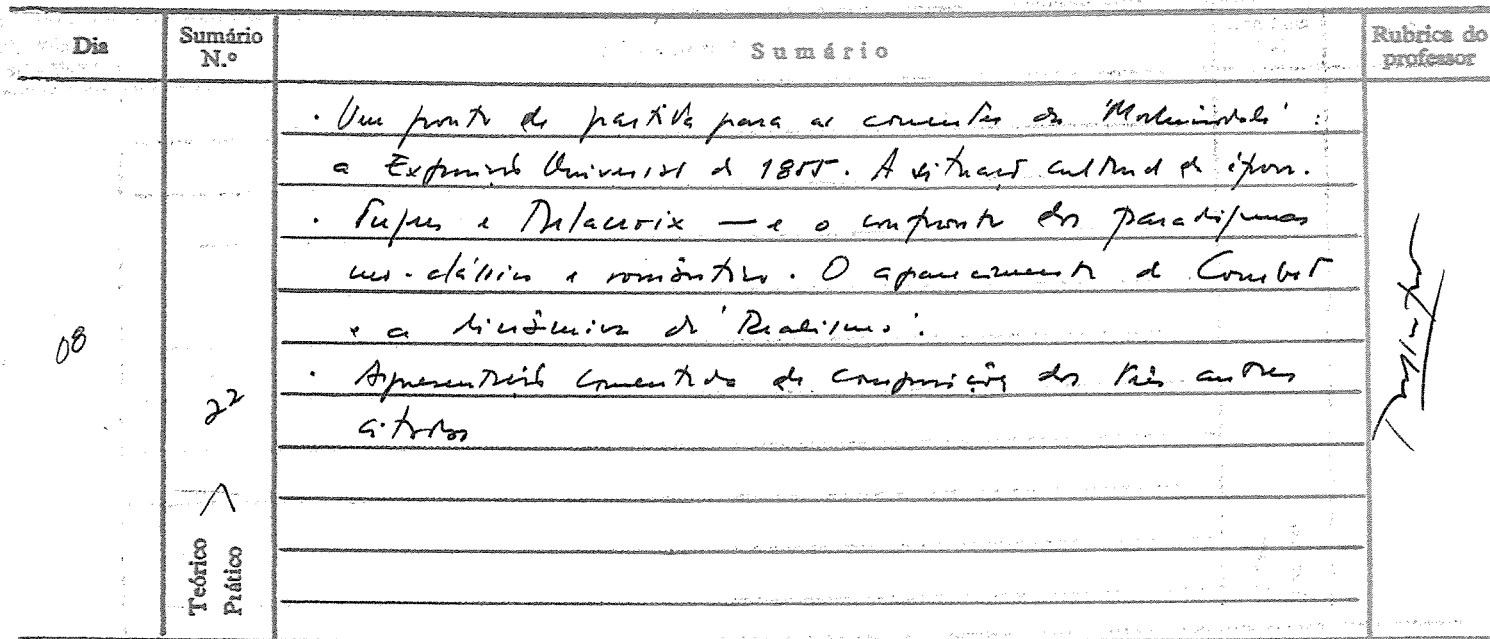 Dia
Sumário N.º
Sumário
Rubrica do professor
· Um ponto de partida para as correntes da 'Modernidade':
a Exposição Universal de 1855. A situação cultural da época.
· Ingres e Delacroix — e o confronto dos paradigmas
neo-clássico e romântico. O aparecimento de Courbet
e a dinâmica do 'Realismo'.
· Apresentação comentada de composições dos três autores
citados
08
22
Teórico
Prático